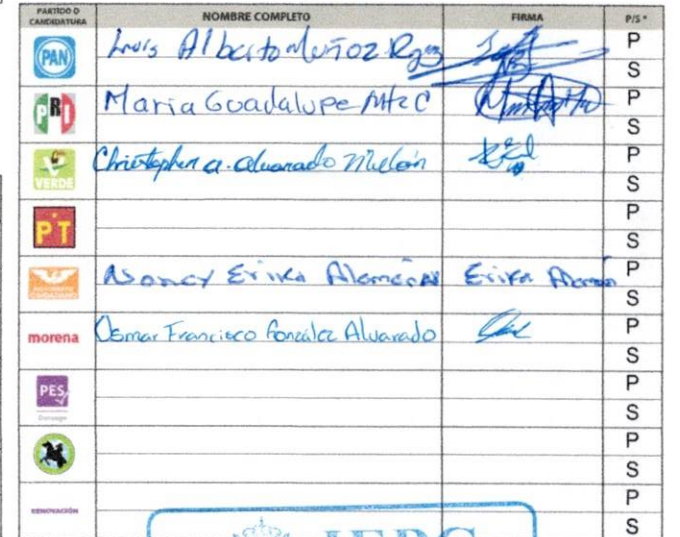 PARTIDO O CANDIDATURA NOMBRE COMPLETO FIRMA P/S *
PAN Luis Alberto Muñoz Rgez P
S
PRI Maria Guadalupe Mtz C P
S
VERDE Christopher a. alvarado P
S
PT P
S
MOVIMIENTO CIUDADANO Nancy Erika Erika P
S
morena Osmar Francisco González Alvarado P
S
PES P
Durango S
P
S
RENOVACIÓN P
S
IEPC